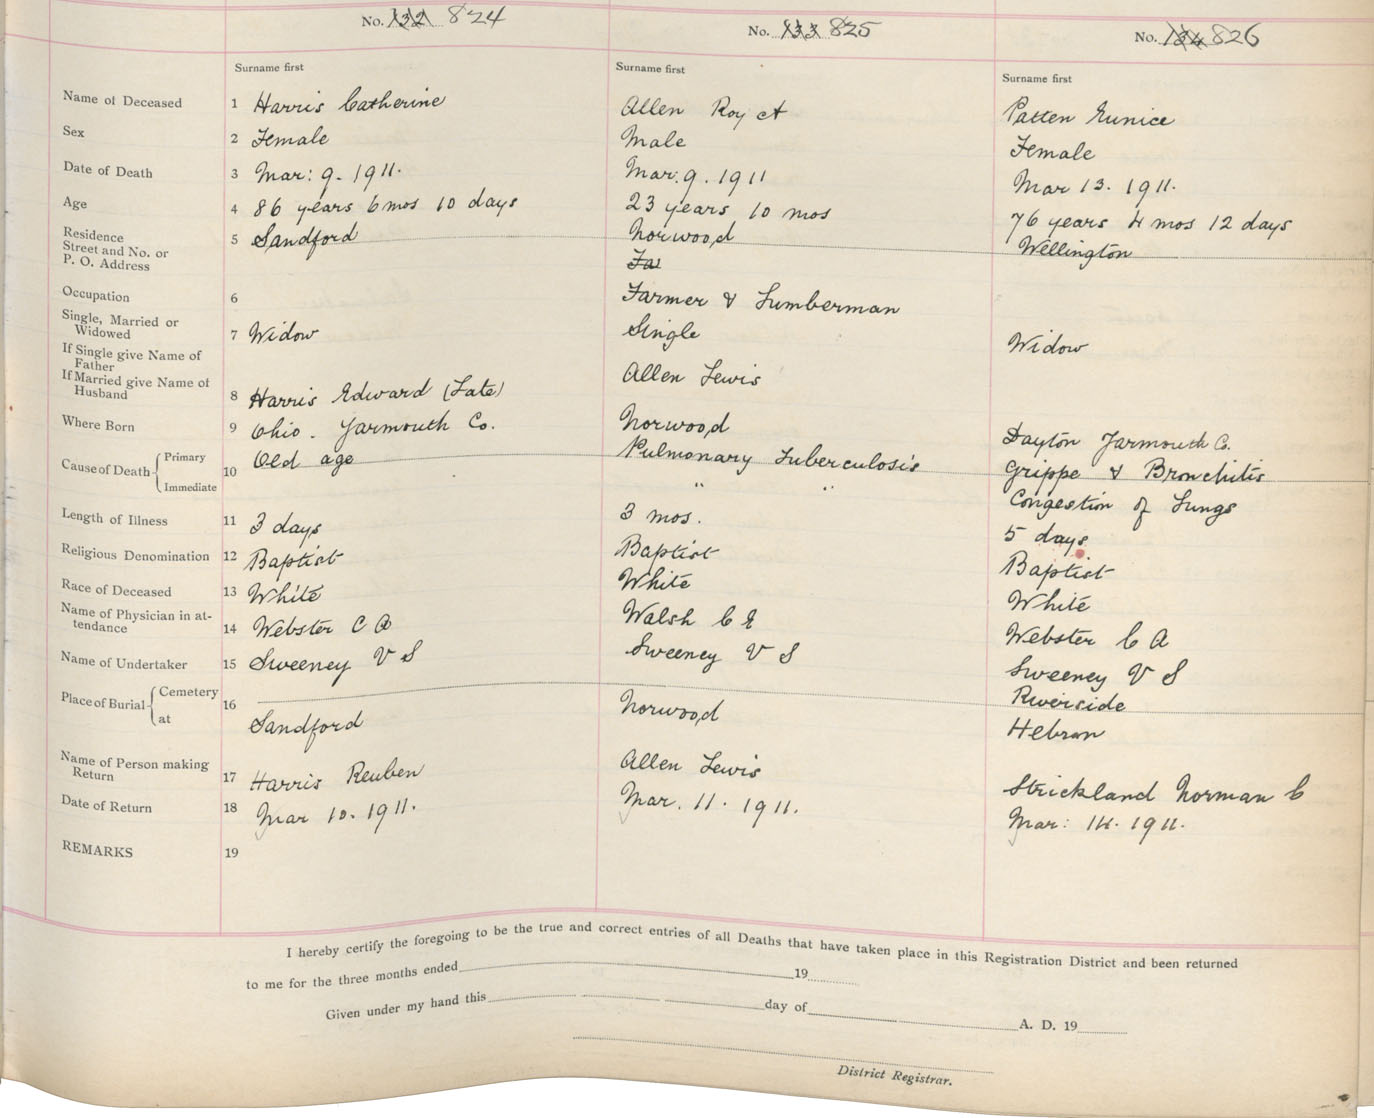 No. 132 824 No. 133 825 No. 134 826
Surname first Surname first Surname first
Name of Deceased 1 Harris Catherine Allen Roy A Patten Eunice
Sex 2 Female Male Female
Date of Death 3 Mar: 9. 1911. Mar: 9. 1911 Mar 13. 1911.
Age 4 86 years 6 mos 10 days 23 years 10 mos 76 years 4 mos 12 days
Residence
Street and No. or
P. O. Address 5 Sandford Norwood Wellington
Fa
Occupation 6 Farmer & Lumberman
Single, Married or
Widowed 7 Widow Single Widow
If Single give Name of
Father
If Married give Name of
Husband 8 Harris Edward (Late) Allen Lewis
Where Born 9 Ohio. Yarmouth Co. Norwood Dayton Yarmouth Co.
Cause of Death Primary 10 Old age Pulmonary Tuberculosis Grippe & Bronchitis
Immediate " " Congestion of Lungs
Length of Illness 11 3 days 3 mos. 5 days
Religious Denomination 12 Baptist Baptist Baptist
Race of Deceased 13 White White White
Name of Physician in at-
tendance 14 Webster C A Walsh C E Webster C A
Name of Undertaker 15 Sweeney V S Sweeney V S Sweeney V S
Place of Burial Cemetery 16 Riverside
at Sandford Norwood Hebron
Name of Person making
Return 17 Harris Reuben Allen Lewis Strickland Norman C
Date of Return 18 Mar 10. 1911. Mar. 11. 1911. Mar: 14. 1911.
REMARKS 19
I hereby certify the foregoing to be the true and correct entries of all Deaths that have taken place in this Registration District and been returned
to me for the three months ended 19
Given under my hand this day of A. D. 19
District Registrar.